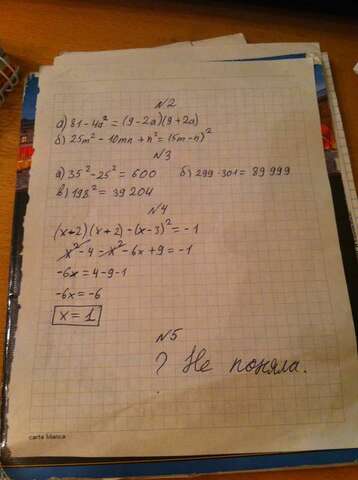 №2
а) 81-4a² = (9-2a)(9+2a)
б) 25m² - 10mn + n² = (5m-n)²
№3
а) 35² - 25² = 600 б) 299·301 = 89 999
в) 198² = 39 204
№4
(x+2)(x+2) - (x-3)² = -1
x² - 4 - x² - 6x + 9 = -1
-6x = 4-9-1
-6x = -6
x = 1
№5
? Не поняла.
carta blanca